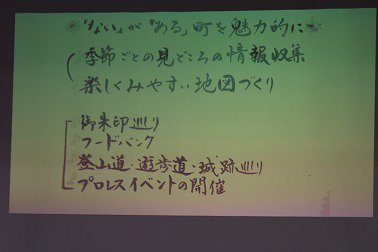 "ない"が"ある"町を魅力的に
季節ごとの見どころの情報収集
楽しくみやすい地図づくり
御朱印巡り
フードバンク
登山道・遊歩道・城跡巡り
プロレスイベントの開催